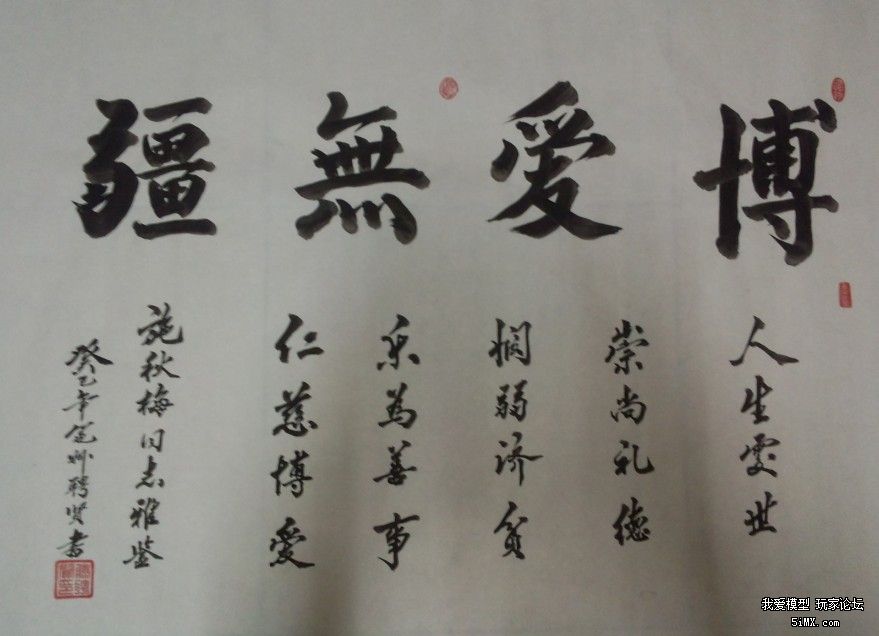 博愛無疆
人生處世
崇尚礼德
悯弱济贫
乐為善事
仁慈博愛
施秋梅同志雅鉴
癸巳年 聘贤书
我爱模型 玩家论坛
5iMX.com